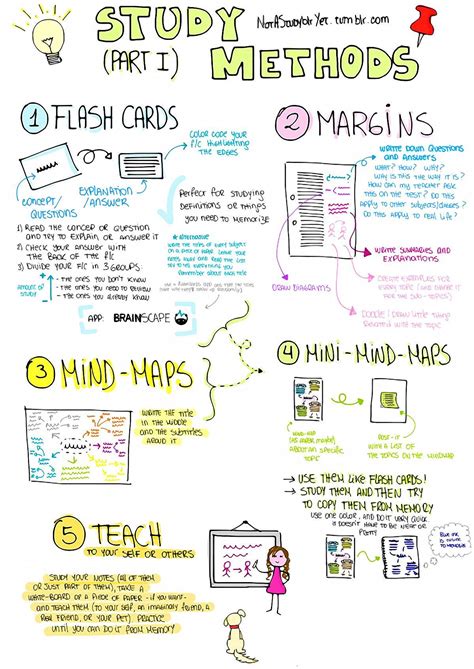 STUDY
(PART I) METHODS
NotAStudyblrYet.tumblr.com
1 FLASH CARDS
COLOR CODE YOUR
F/C HIGHLIGHTING
THE EDGES
CONCEPT/
QUESTIONS
EXPLANATION
/ANSWER
PERFECT FOR STUDYING
DEFINITIONS OR THINGS
YOU NEED TO MEMORIZE
1) READ THE CONCEPT OR QUESTION
AND TRY TO EXPLAIN OR ANSWER IT
2) CHECK YOUR ANSWER WITH
THE BACK OF THE F/C
3) DIVIDE YOUR F/C IN 3 GROUPS:
AMOUNT OF
STUDY
- THE ONES YOU DON'T KNOW
- THE ONES YOU NEED TO REVIEW
- THE ONES YOU ALREADY KNOW
* ALTERNATIVE
WRITE THE TITLES OF EVERY SUBJECT
ON A PIECE OF PAPER. LEAVE YOUR
NOTES AWAY AND READ THE
TITLES EVERYTHING YOU
REMEMBER ABOUT EACH TITLE
APP: BRAINSCAPE
2 MARGINS
WRITE DOWN QUESTIONS
AND ANSWERS
WHAT? HOW? WHY?
WHY IS THIS THE WAY IT IS?
HOW CAN MY TEACHER ASK
THIS ON THE TEST? DO THIS
APPLY TO OTHER SUBJECTS/CLASSES?
DO THIS APPLY TO REAL LIFE?
WRITE SUMMARIES AND
EXPLANATIONS
CREATE EXAMPLES FOR
EVERY TOPIC (AND
THE SUB-TOPICS)
DRAW DIAGRAMS
DOODLE/DRAW LITTLE THINGS
RELATED WITH THE TOPIC
3 MIND-MAPS
WRITE THE TITLE
IN THE MIDDLE
AND THE SUBTITLES
AROUND IT
4 MINI-MIND-MAPS
MIND-MAP
ABOUT AN SPECIFIC
TOPIC
POST-IT
WITH A LIST OF
THE TOPICS ON THE MINDMAP
→ USE THEM LIKE FLASH CARDS!
→ STUDY THEM AND THEN TRY
TO COPY THEM FROM MEMORY
USE ONE COLOR, AND DO IT VERY QUICK
IT DOESN'T HAVE TO BE NEAT OR
PRETTY
BLUE INK
IS EASIER
TO MEMORIZE
5 TEACH
TO YOUR SELF OR OTHERS
STUDY YOUR NOTES (ALL OF THEM
OR JUST PART OF THEM), TAKE A
WHITE-BOARD OR A PIECE OF PAPER - IF YOU WANT -
AND TEACH THEM (TO YOUR SELF, AN IMAGINARY FRIEND, A
REAL FRIEND, OR YOUR PET). PRACTICE
UNTIL YOU CAN DO IT FROM MEMORY